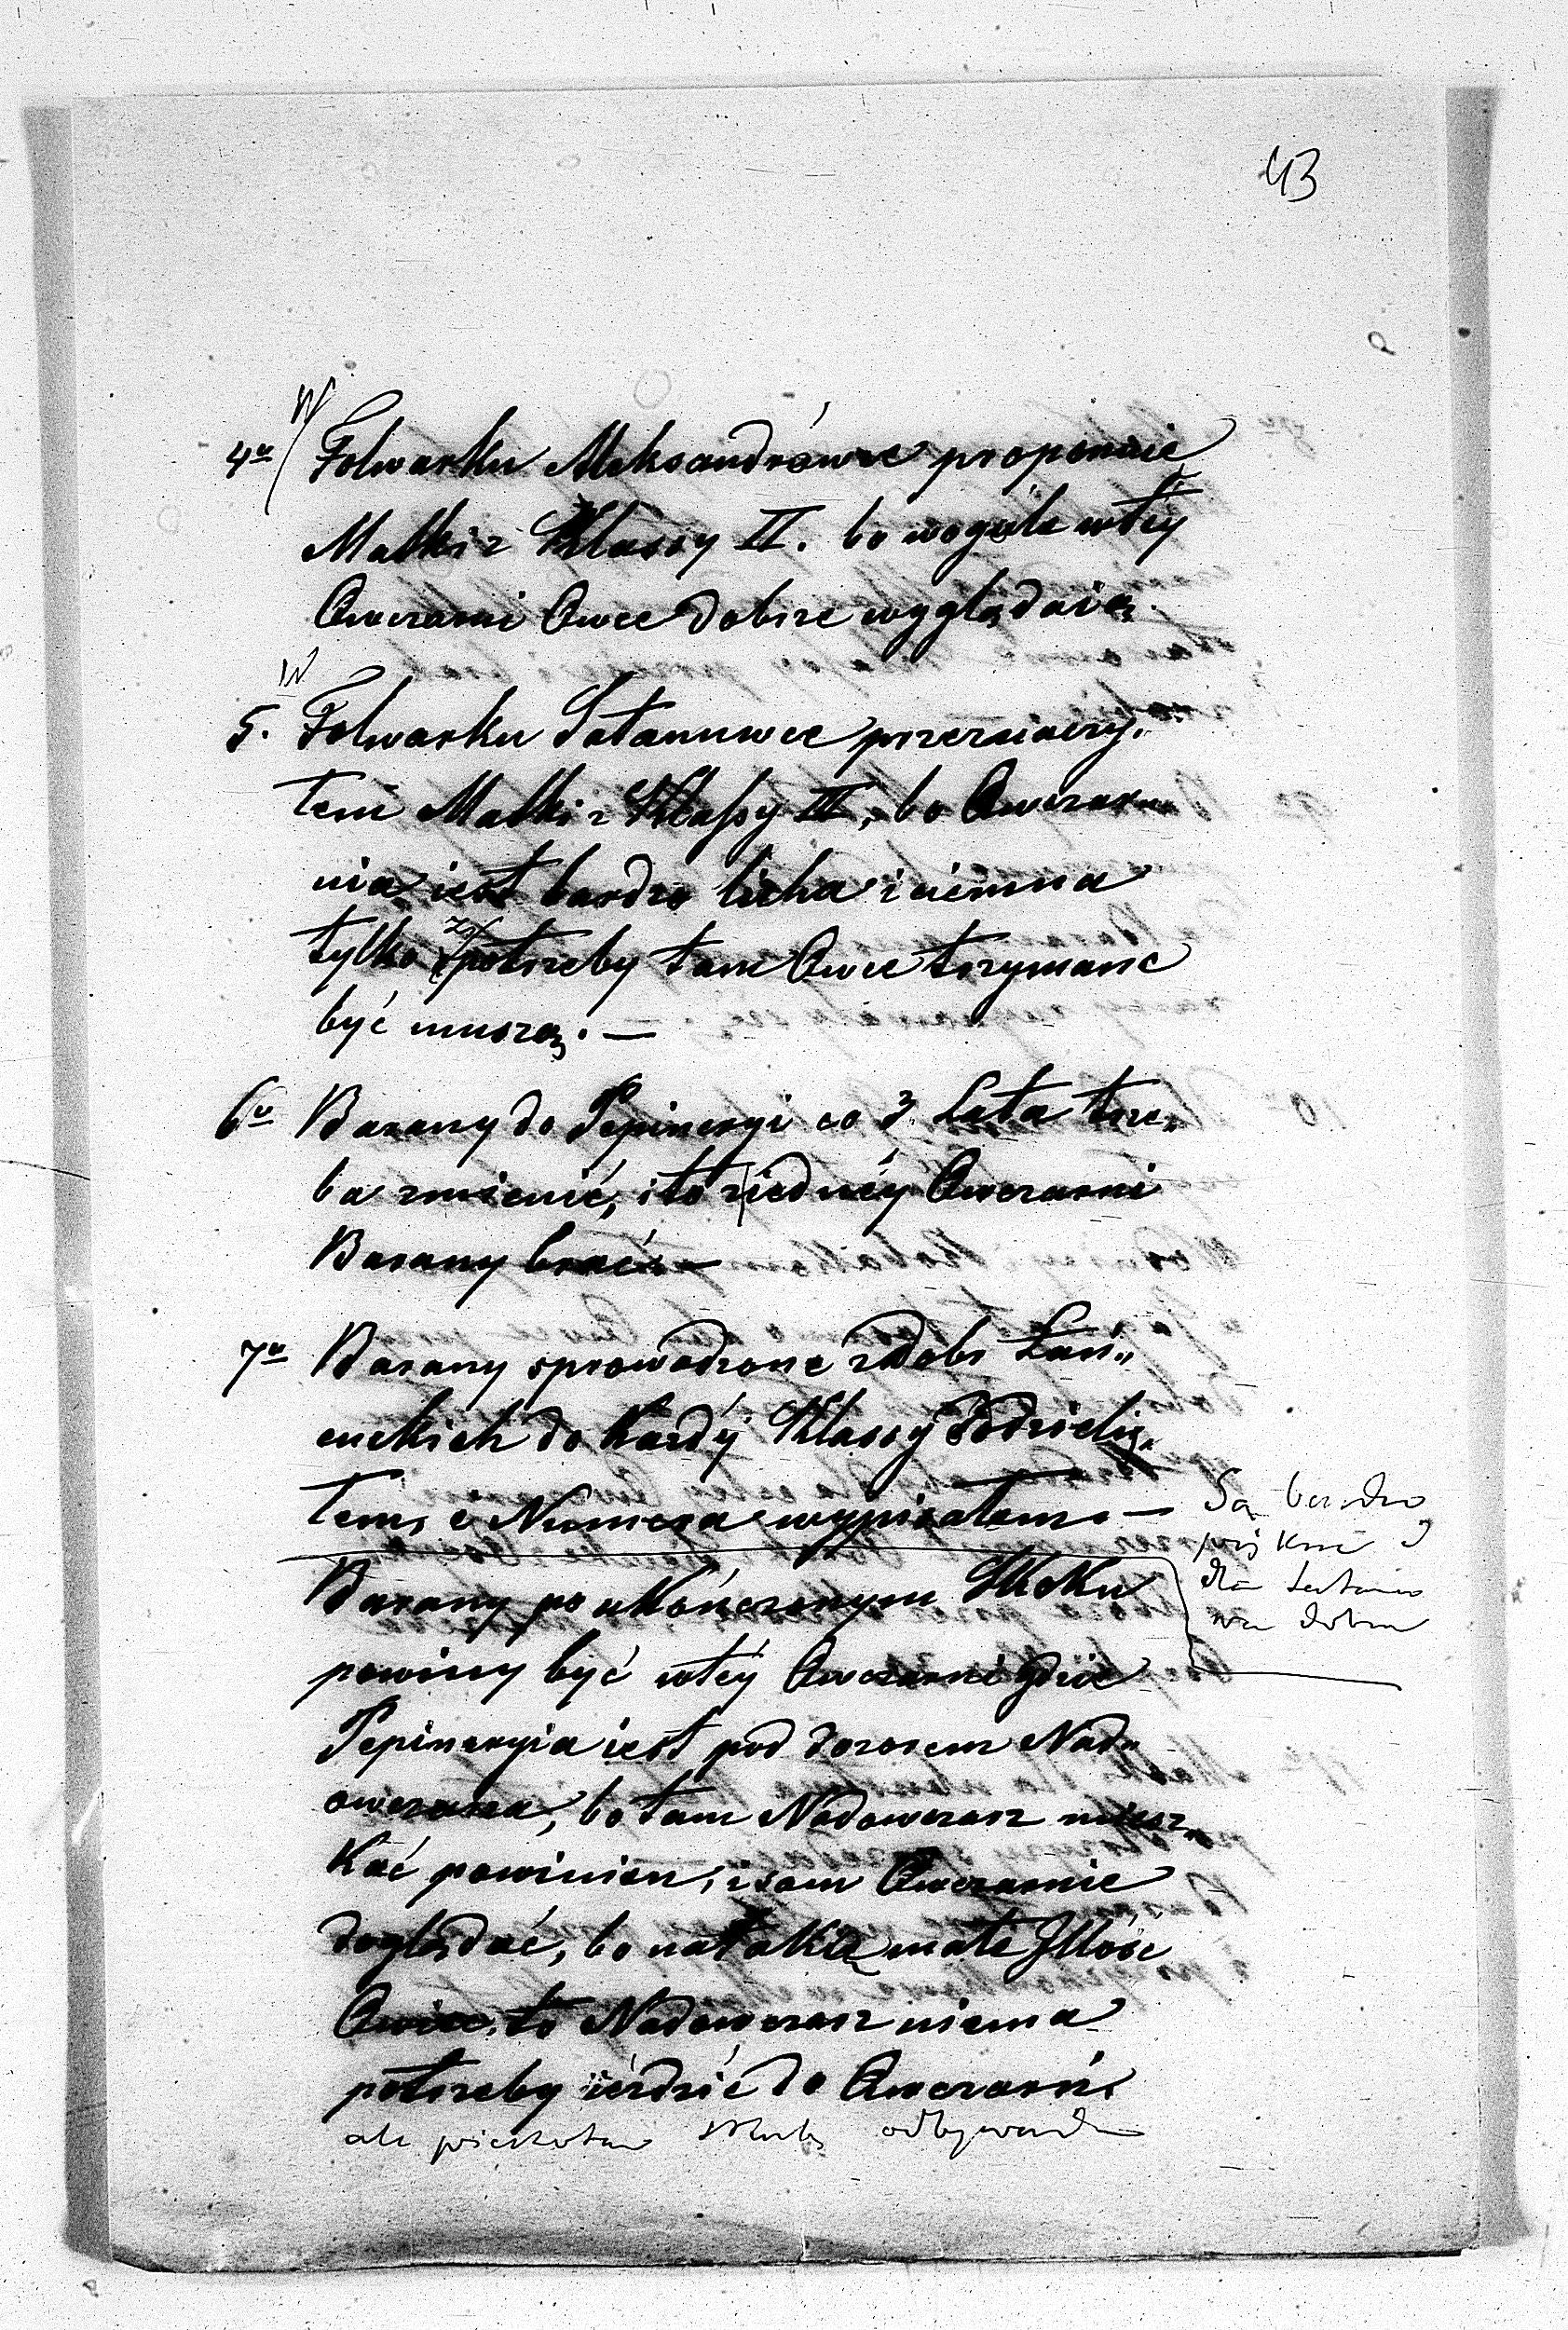 43
W
4o Folwarku Aleksandrówce proponuię
Matki z Klassy II. bo wogóle wtéy
Owczarni Owce dobrze wyglądaią.
W
5. Folwarku Satanuwce przeznaczy„
łem Matki z Klassy III, bo Owczar„
nia iest bardzo licha i ciemna
tylko z potrzeby tam Owce trzymane
być muszą. —
6o Barany do Pepineryi co 3 Lata trze„
ba zmienić, i to z iednéy Owczarni
Barany brać. —
7o Barany sprowadzone z Dobr Łań„
cuckich do Każdy Klassy Podzieli„
łem, i Numera wypisałem. —
Są bardzo
piękne i
dla
dobre
Barany po ukończonym Skoku
powinny być wtéy Owczarni gdzie
Pepineryia iest pod dozorem Nad„
owczarza, bo tam Nadowczarz miesz„
kać powinien, i sam Owczarnie
doglądać, bo na takie małe Jllość
Owiec, to Nadowczarz niema
potrzeby ieździć do Owczarń,
ale piechotą odbywać